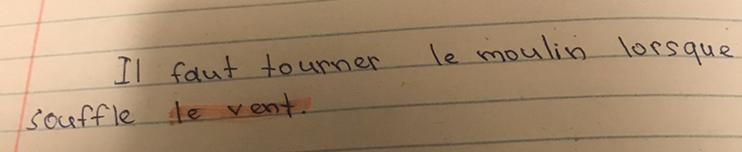 Il faut tourner le moulin lorsque
souffle le vent.